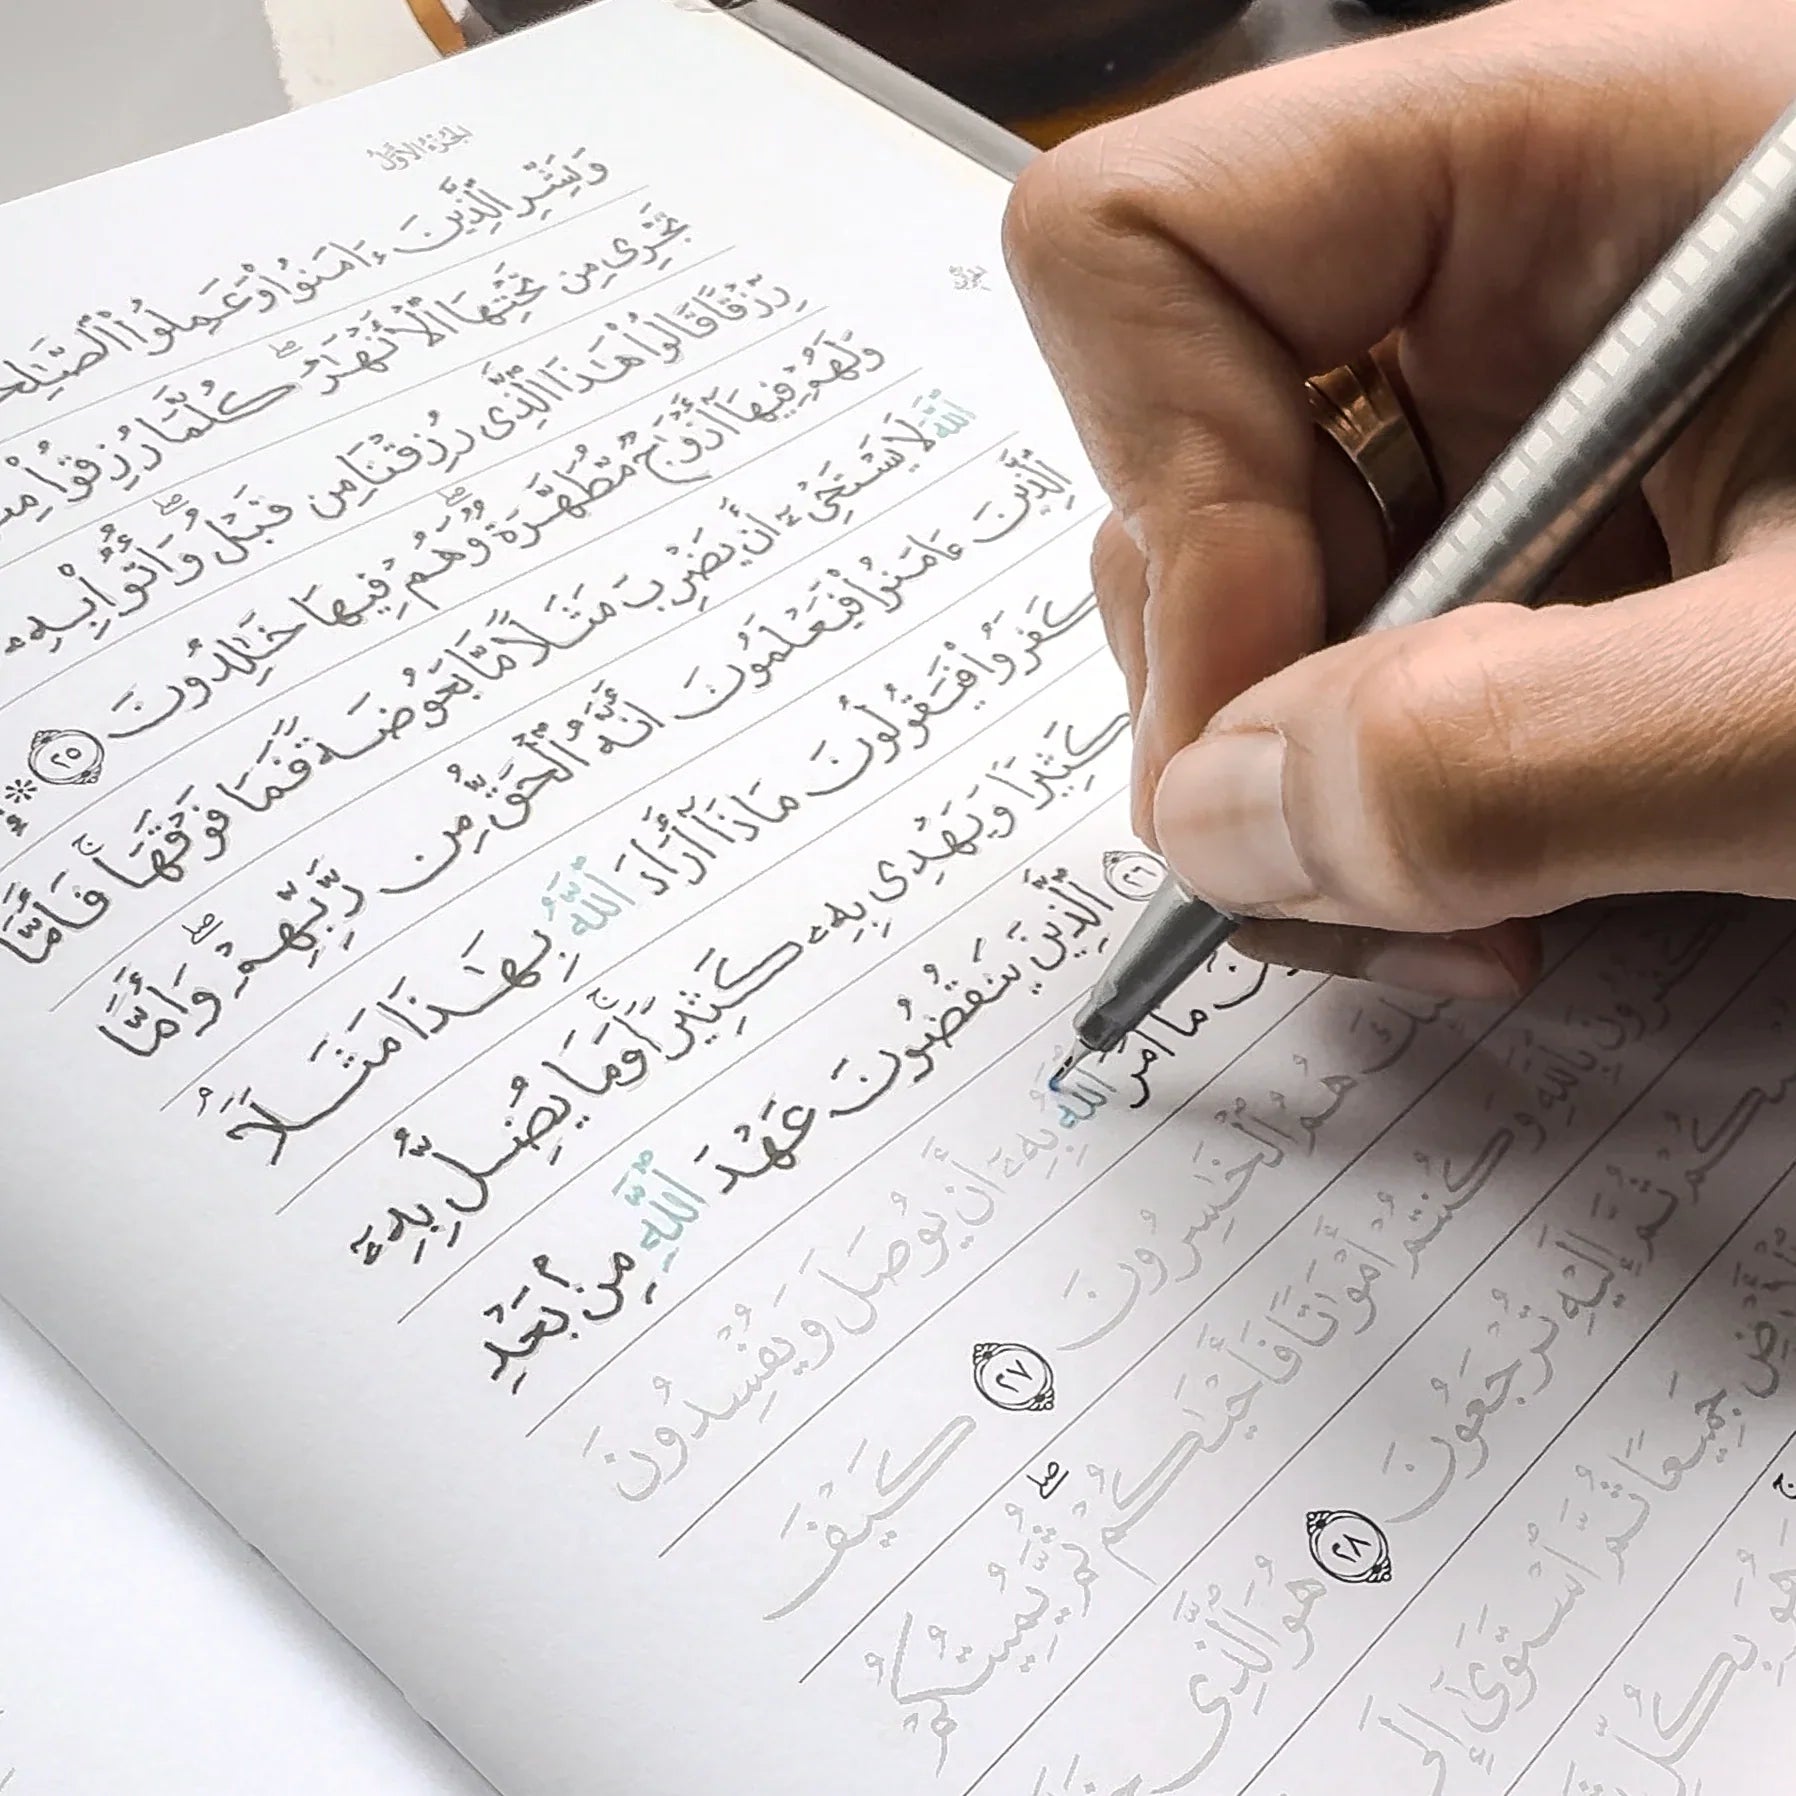 الجزء الأول
وَبَشِّرِ ٱلَّذِينَ ءَامَنُوا۟ وَعَمِلُوا۟ ٱلصَّـٰلِحَـ
تَجْرِى مِن تَحْتِهَا ٱلْأَنْهَـٰرُ ۖ كُلَّمَا رُزِقُوا۟ مِنْـ
رِّزْقًا قَالُوا۟ هَـٰذَا ٱلَّذِى رُزِقْنَا مِن قَبْلُ ۖ وَأُتُوا۟ بِهِۦ
وَلَهُمْ فِيهَآ أَزْوَٰجٌ مُّطَهَّرَةٌ ۖ وَهُمْ فِيهَا خَـٰلِدُونَ ٢٥ ۞
ٱللَّهَ لَا يَسْتَحْىِۦٓ أَن يَضْرِبَ مَثَلًا مَّا بَعُوضَةً فَمَا فَوْقَهَا ۚ فَأَمَّا
ٱلَّذِينَ ءَامَنُوا۟ فَيَعْلَمُونَ أَنَّهُ ٱلْحَقُّ مِن رَّبِّهِمْ ۖ وَأَمَّا
كَفَرُوا۟ فَيَقُولُونَ مَاذَآ أَرَادَ ٱللَّهُ بِهَـٰذَا مَثَلًا ۘ
كَثِيرًا وَيَهْدِى بِهِۦ كَثِيرًا ۚ وَمَا يُضِلُّ بِهِۦٓ
٢٦ ٱلَّذِينَ يَنقُضُونَ عَهْدَ ٱللَّهِ مِنۢ بَعْدِ
ـونَ مَآ أَمَرَ ٱللَّهُ بِهِۦٓ أَن يُوصَلَ وَيُفْسِدُونَ
ـئِكَ هُمُ ٱلْخَـٰسِرُونَ ٢٧ كَيْفَ
تَكْفُرُونَ بِٱللَّهِ وَكُنتُمْ أَمْوَٰتًا فَأَحْيَـٰكُمْ ۖ ثُمَّ يُمِيتُكُمْ
ـيكُمْ ثُمَّ إِلَيْهِ تُرْجَعُونَ ٢٨ هُوَ ٱلَّذِى
ـأَرْضِ جَمِيعًا ثُمَّ ٱسْتَوَىٰٓ إِلَى
وَهُوَ بِكُلِّ